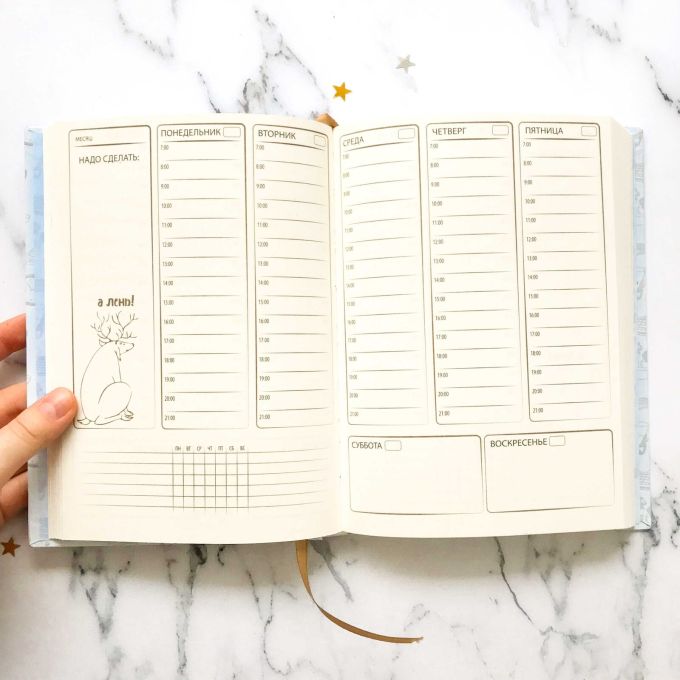 МЕСЯЦ
НАДО СДЕЛАТЬ:
а лень!
ПОНЕДЕЛЬНИК
7:00
8:00
9:00
10:00
11:00
12:00
13:00
14:00
15:00
16:00
17:00
18:00
19:00
20:00
21:00
ВТОРНИК
7:00
8:00
9:00
10:00
11:00
12:00
13:00
14:00
15:00
16:00
17:00
18:00
19:00
20:00
21:00
ПН ВТ СР ЧТ ПТ СБ ВС
СРЕДА
7:00
8:00
9:00
10:00
11:00
12:00
13:00
14:00
15:00
16:00
17:00
18:00
19:00
20:00
21:00
ЧЕТВЕРГ
7:00
8:00
9:00
10:00
11:00
12:00
13:00
14:00
15:00
16:00
17:00
18:00
19:00
20:00
21:00
ПЯТНИЦА
7:00
8:00
9:00
10:00
11:00
12:00
13:00
14:00
15:00
16:00
17:00
18:00
19:00
20:00
21:00
СУББОТА
ВОСКРЕСЕНЬЕ